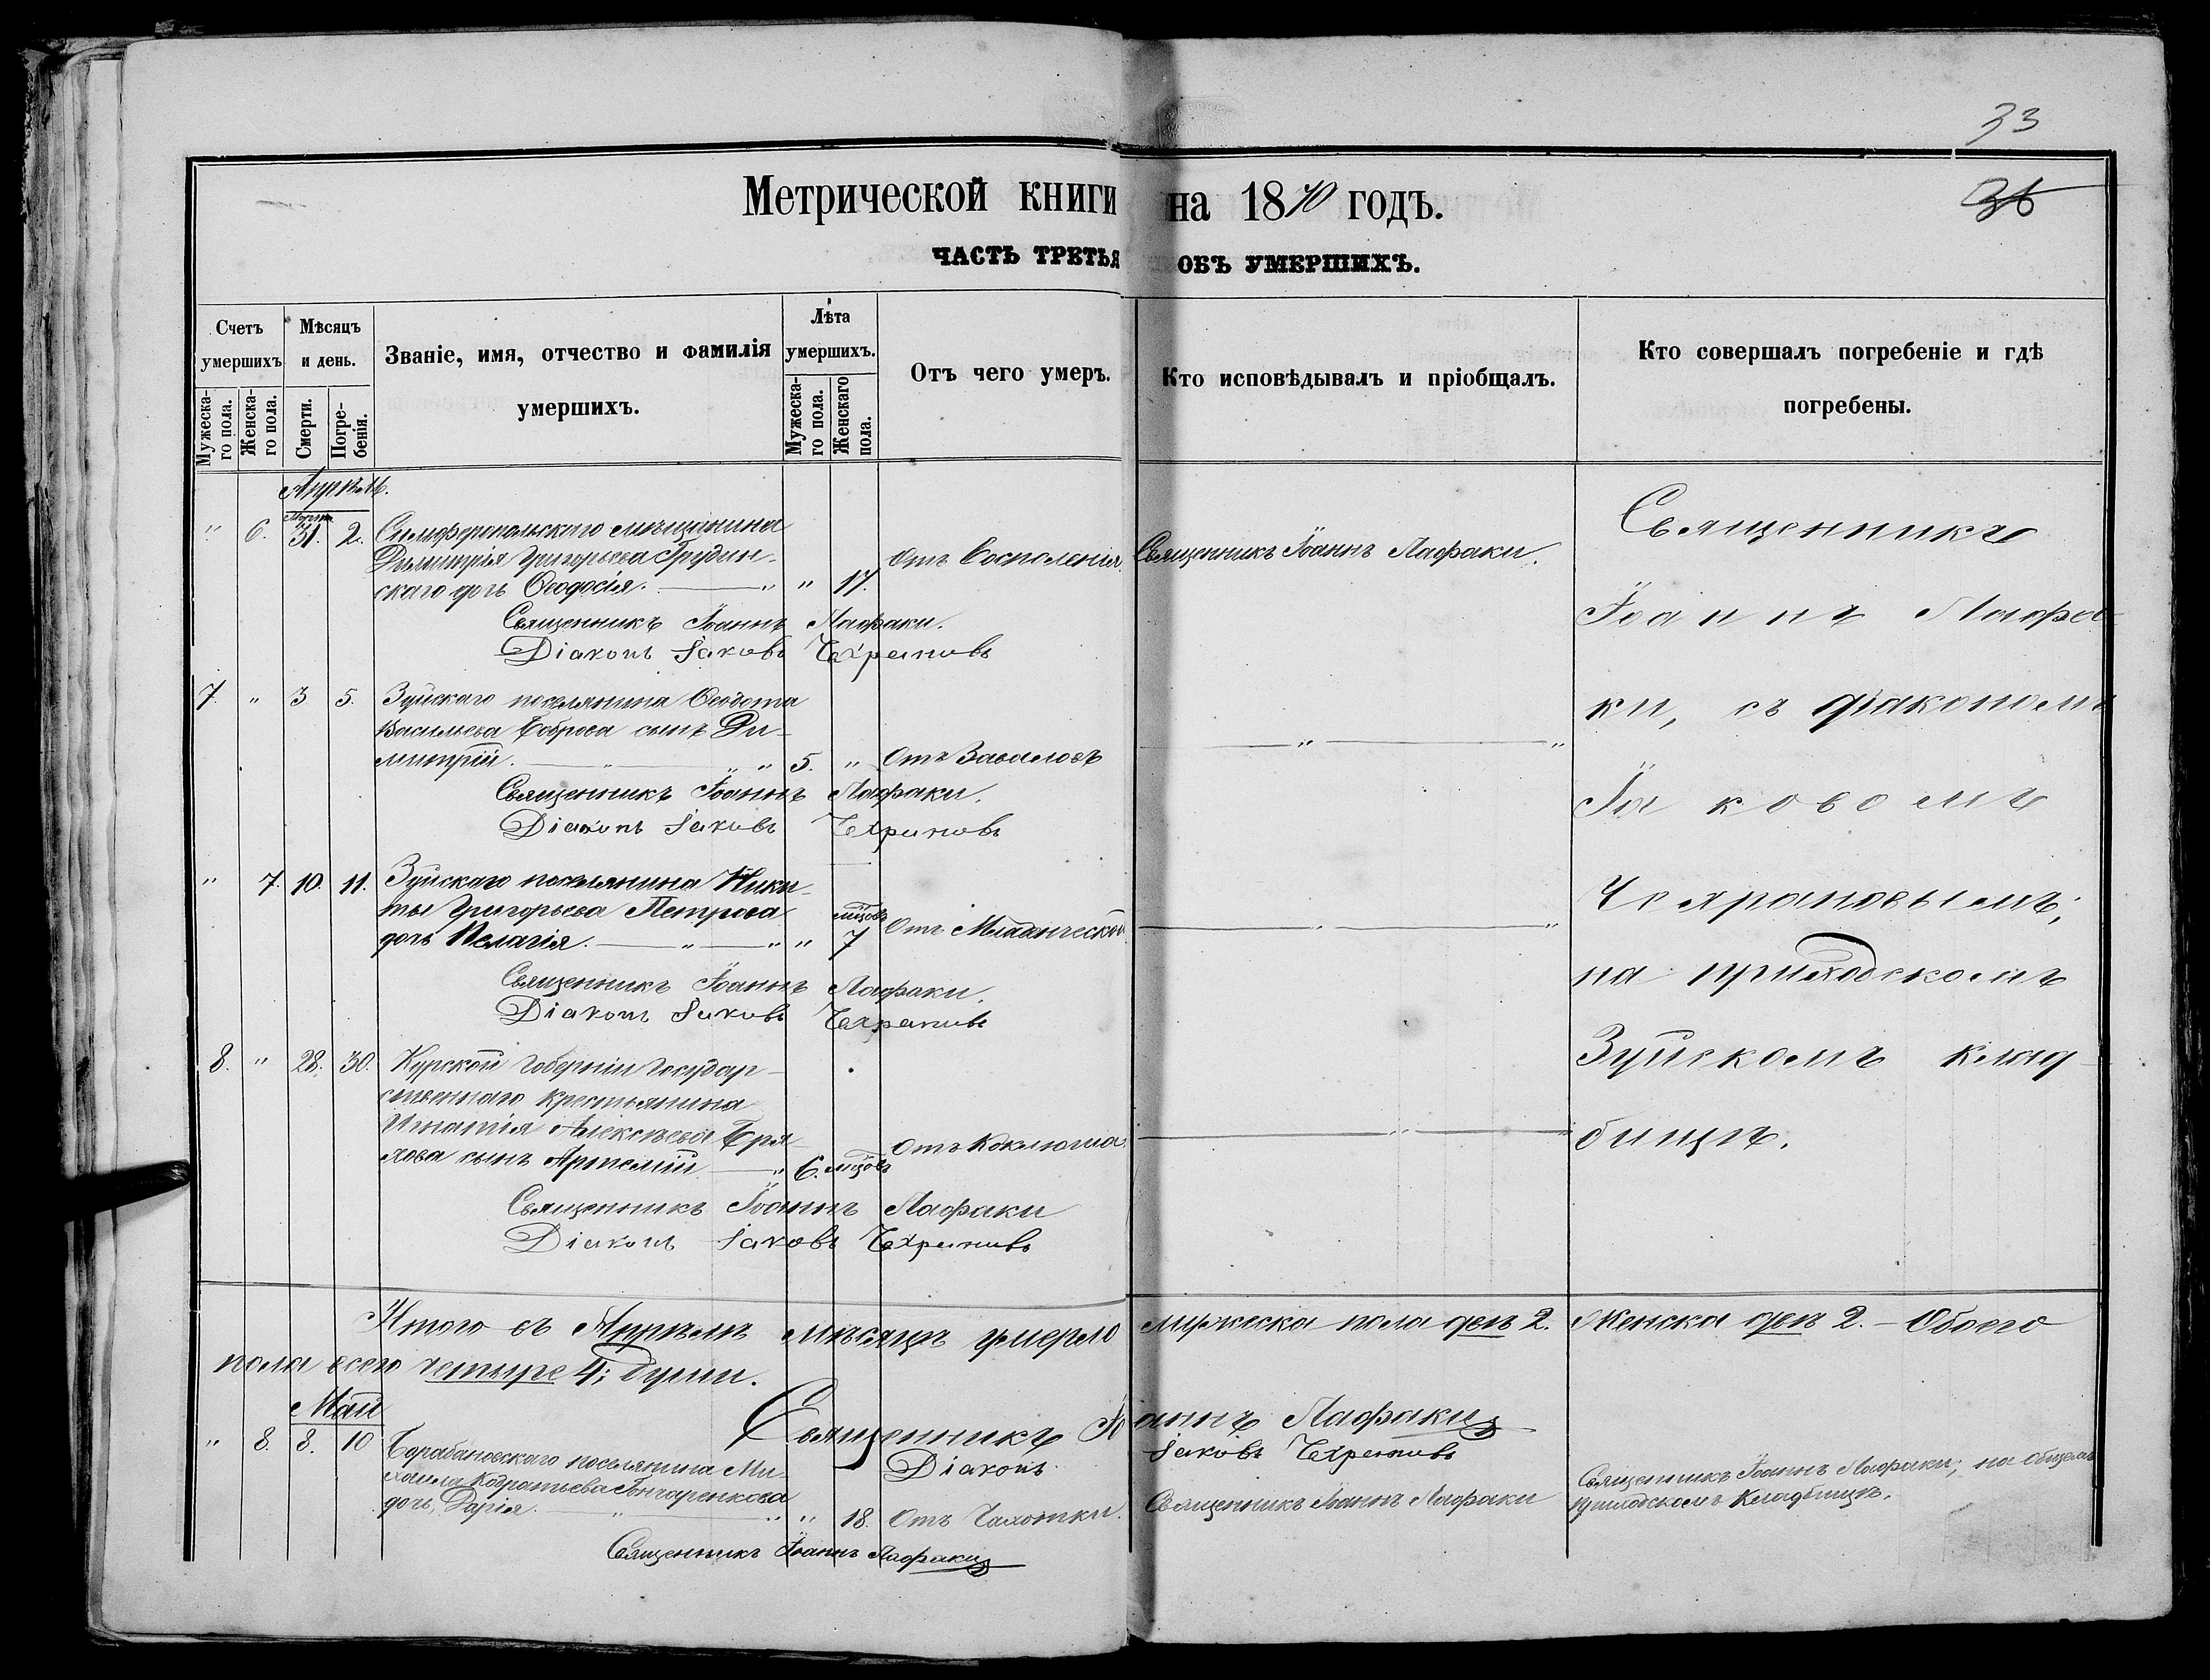 33
36
Метрической книги на 1870 годъ.
ЧАСТЬ ТРЕТЬЯ ОБЪ УМЕРШИХЪ.
Счетъ умершихъ
Мѣсяцъ и день.
Званіе, имя, отчество и фамилія умершихъ.
Лѣта умершихъ.
Отъ чего умеръ.
Кто исповѣдывалъ и пріобщалъ.
Кто совершалъ погребеніе и гдѣ погребены.
Мужеска-го пола.
Женска-го пола.
Смерти.
Погре-бенія.
Мужеска-го пола.
Женскаго пола.
Апрѣль.
" 6. Марта 31. 2. Симферопольскаго мѣщанина
Димитрія Григорьева Грудин-
скаго дочь Ѳеодосія. " " 17. Отъ Воспаленія. Священникъ Іоаннъ Лафаки.
Священникъ Іоаннъ Лафаки.
Діаконъ Іаковъ Чехрановъ
7. " 3 5. Зуйскаго поселянина Ѳеодота
Васильева Боброва сынъ Ди-
митрій. " " " 5. " Отъ Заваловъ " "
Священникъ Іоаннъ Лафаки.
Діаконъ Іаковъ Чехрановъ
" 7. 10. 11. Зуйскаго поселянина Ники-
ты Григорьева Петрова
дочь Пелагія. " " " мѣсцовъ 7 Отъ Младенческой " "
Священникъ Іоаннъ Лафаки.
Діаконъ Іаковъ Чехрановъ
8. " 28. 30. Курской Губерніи Государ-
ственнаго крестьянина
Игнатія Алексѣева Бря
хова сынъ Артемій " 6. мѣсцовъ Отъ Коклюша. " "
Священникъ Іоаннъ Лафаки
Діаконъ Іаковъ Чехрановъ
Священникъ
Іоаннъ Лафа-
ки, съ діакономъ
Іаковомъ
Чехрановымъ;
на приходскомъ
Зуйскомъ клад-
бищѣ.
Итого въ Апрѣлѣ мѣсяцѣ умерло мужеска пола двѣ 2. Женска двѣ 2. – Обоего
пола всего четыре 4; души.
Священникъ Іоаннъ Лафаки
Діаконъ Іаковъ Чехрановъ
Май
" 8. 8. 10 поселянина Ми-
хаила Кодратьева Гончаренкова
дочь Дарія. " " " 18. Отъ Чахотки. Священникъ Іоаннъ Лафаки
Священникъ Іоаннъ Лафаки; на общемъ
приходскомъ Кладбищѣ.
Священникъ Іоаннъ Лафаки